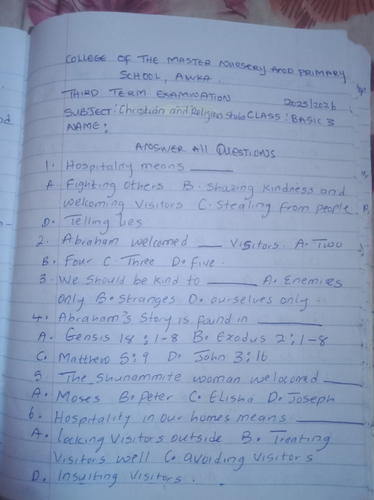 COLLEGE OF THE MASTER NURSERY AND PRIMARY
SCHOOL, AWKA.
THIRD TERM EXAMINATION 2025/2026
SUBJECT: Christian and Religius Stubs CLASS: BASIC 3
NAME:
ANSWER ALL QUESTIONS
1. Hospitality means ____
A. Fighting Others B. Sharing kindness and
welcoming Visitors C. Stealing from people.
D. Telling lies
2. Abraham welcomed ___ Visitors. A. Two
B. Four C. Three D. Five.
3. We Should be kind to ____ A. Enemies
only B. Stranges D. ourselves only.
4. Abraham's Story is found in ____
A. Gensis 18:1-8 B. Exodus 2:1-8
C. Matthew 5:9 D. John 3:16
5 The Shunammite woman welcomed ____
A. Moses B. Peter C. Elisha D. Joseph
6. Hospitality in our homes means ____
A. locking Visitors outside B. Treating
Visitors well C. avoiding Visitors
D. Insulting Visitors.